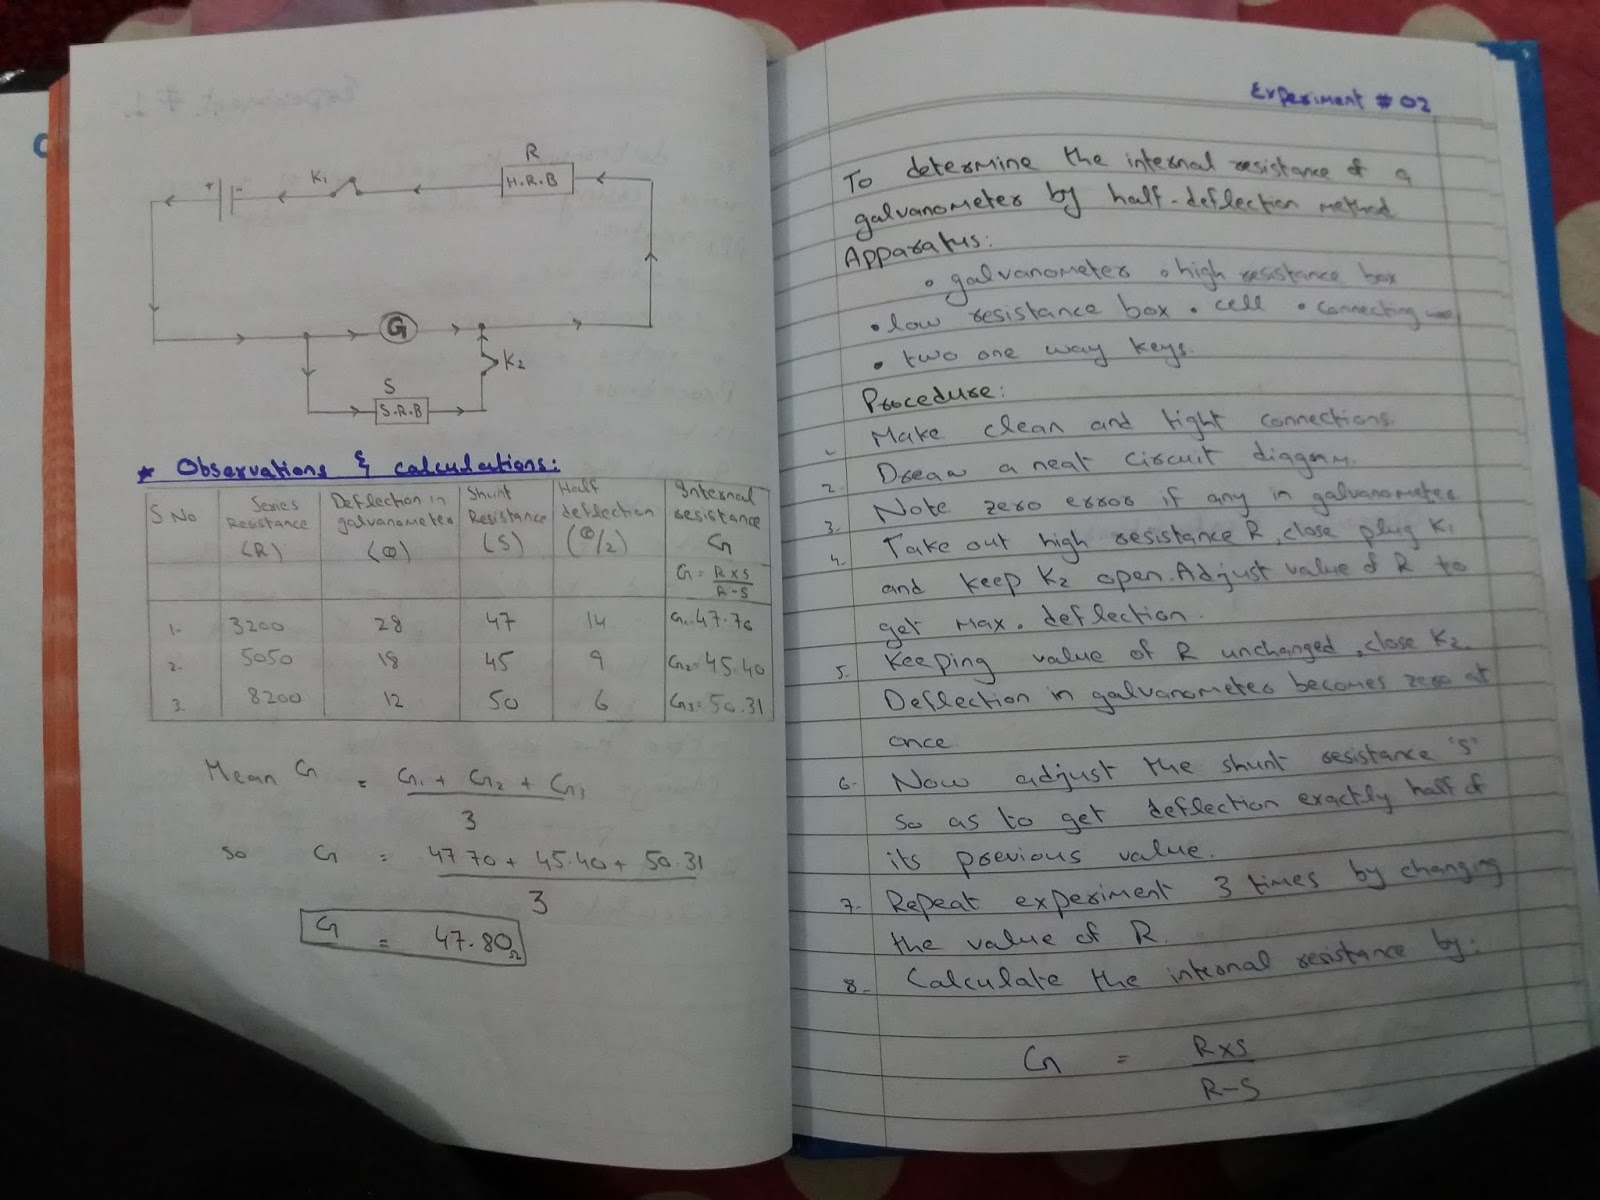 R
H.R.B
K1
+ -
G
K2
S
S.R.B
* Observations & calculations:
S No
Series Resistance (R)
Deflection in galvanometer (θ)
Shunt Resistance (S)
Half deflection (θ/2)
Internal resistance G
G = RxS / R-S
1. 3200 28 47 14 G1=47.70
2. 5050 18 45 9 G2=45.40
3. 8200 12 50 6 G3=50.31
Mean G = G1 + G2 + G3
3
so G = 47.70 + 45.40 + 50.31
3
G = 47.80Ω
Experiment # 02
To determine the internal resistance of a
galvanometer by half-deflection method
Apparatus:
• galvanometer • high resistance box
• low resistance box • cell • connecting
• two one way keys.
Procedure:
1. Make clean and tight connections.
2. Draw a neat circuit diagram.
3. Note zero error if any in galvanometer
4. Take out high resistance R, close plug K1
and keep K2 open. Adjust value of R to
get max. deflection.
5. Keeping value of R unchanged, close K2.
Deflection in galvanometer becomes zero at
once.
6. Now adjust the shunt resistance 'S'
so as to get deflection exactly half of
its previous value.
7. Repeat experiment 3 times by changing
the value of R.
8. Calculate the internal resistance by:
G = RxS
R-S